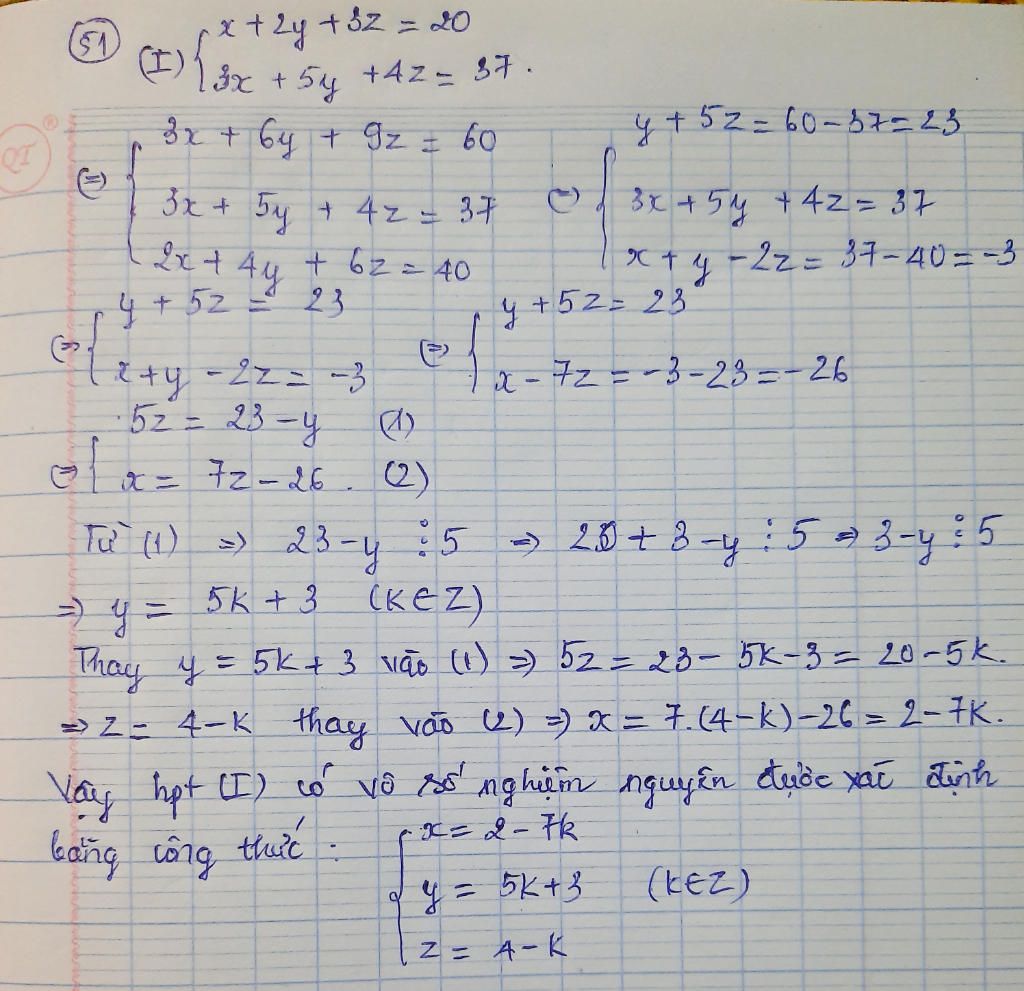 51 (I) { x + 2y + 3z = 20
3x + 5y + 4z = 37.
QT ®
⇔ { 3x + 6y + 9z = 60
3x + 5y + 4z = 37
2x + 4y + 6z = 40
⇔ { y + 5z = 60 - 37 = 23
3x + 5y + 4z = 37
x + y - 2z = 37 - 40 = -3
⇔ { y + 5z = 23
x + y - 2z = -3
⇔ { y + 5z = 23
x - 7z = -3 - 23 = -26
⇔ { 5z = 23 - y (1)
x = 7z - 26. (2)
Từ (1) ⇒ 23 - y ⋮ 5 ⇒ 20 + 3 - y ⋮ 5 ⇒ 3 - y ⋮ 5
⇒ y = 5k + 3 (k ∈ Z)
Thay y = 5k + 3 vào (1) ⇒ 5z = 23 - 5k - 3 = 20 - 5k.
⇒ z = 4 - k thay vào (2) ⇒ x = 7.(4 - k) - 26 = 2 - 7k.
Vậy hpt (I) có vô số nghiệm nguyên được xác định
bằng công thức : { x = 2 - 7k
y = 5k + 3 (k ∈ Z)
z = 4 - k